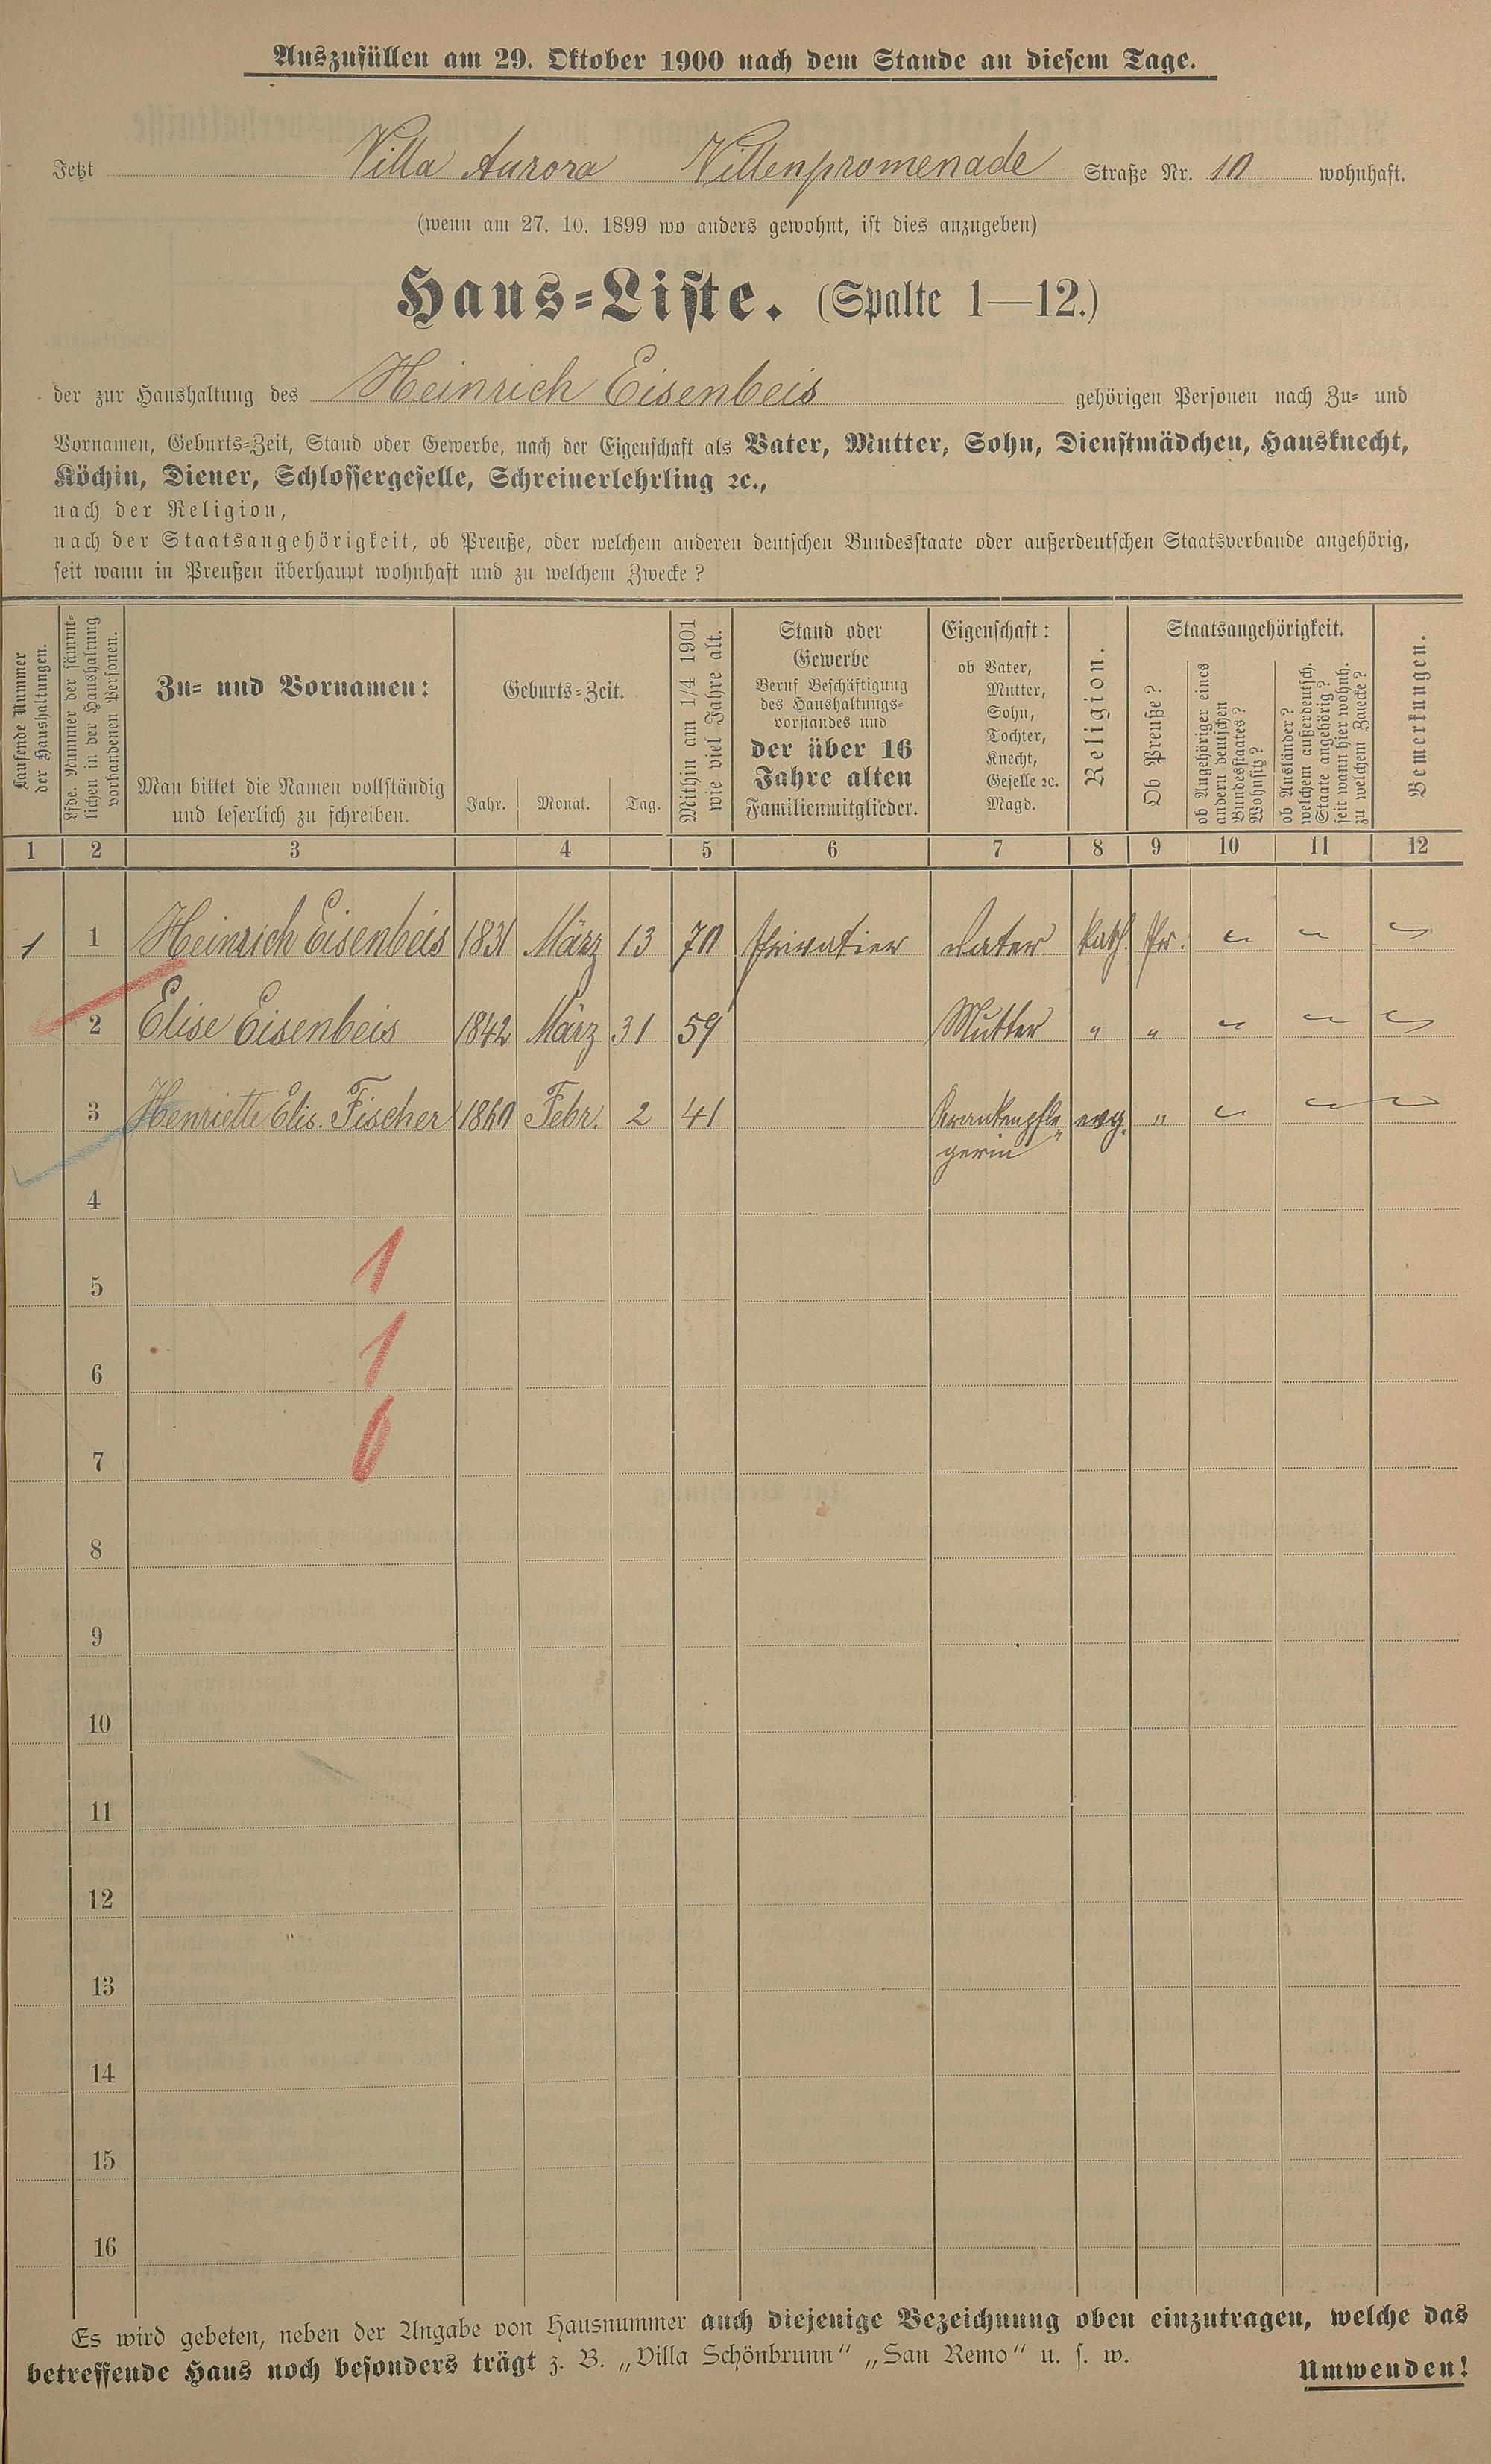 Auszufüllen am 29. Oktober 1900 nach dem Stande an diesem Tage.
Jetzt Villa Aurora Villenpromenade Straße Nr. 10 wohnhaft.
(wenn am 27. 10. 1899 wo anders gewohnt, ist dies anzugeben)
Haus-Liste. (Spalte 1—12.)
der zur Haushaltung des Heinrich Eisenbeis gehörigen Personen nach Zu- und
Vornamen, Geburts-Zeit, Stand oder Gewerbe, nach der Eigenschaft als Vater, Mutter, Sohn, Dienstmädchen, Hausknecht,
Köchin, Diener, Schlossergeselle, Schreinerlehrling ꝛc.,
nach der Religion,
nach der Staatsangehörigkeit, ob Preuße, oder welchem anderen deutschen Bundesstaate oder außerdeutschen Staatsverbande angehörig,
seit wann in Preußen überhaupt wohnhaft und zu welchem Zwecke?
Laufende Nummer
der Haushaltungen.
Lfde. Nummer der sämmt-
lichen in der Haushaltung
vorhandenen Personen.
Zu- und Vornamen:
Man bittet die Namen vollständig
und leserlich zu schreiben.
Geburts-Zeit.
Jahr. Monat. Tag.
Mithin am 1/4 1901
wie viel Jahre alt.
Stand oder
Gewerbe
Beruf Beschäftigung
des Haushaltungs-
vorstandes und
der über 16
Jahre alten
Familienmitglieder.
Eigenschaft:
ob Vater,
Mutter,
Sohn,
Tochter,
Knecht,
Geselle ꝛc.
Magd.
Religion.
Staatsangehörigkeit.
Ob Preuße?
ob Angehöriger eines
andern deutschen
Bundesstaates?
Wohnsitz?
ob Ausländer?
welchem außerdeutsch.
Staate angehörig?
seit wann hier wohnh.
zu welchem Zwecke?
Bemerkungen.
1 2 3 4 5 6 7 8 9 10 11 12
1 1 Heinrich Eisenbeis 1831 März 13 70 Privatier Vater kath. Pr. " "
2 Elise Eisenbeis 1842 März 31 59 Mutter " " " "
3 Henriette Elis. Fischer 1860 Febr. 2 41 Krankenpfle„ evg. " " "
gerin
4
1
5
1
6
0
7
8
9
10
11
12
13
14
15
16
Es wird gebeten, neben der Angabe von Hausnummer auch diejenige Bezeichnung oben einzutragen, welche das
betreffende Haus noch besonders trägt z. B. „Villa Schönbrunn" „San Remo" u. s. w.
Umwenden!